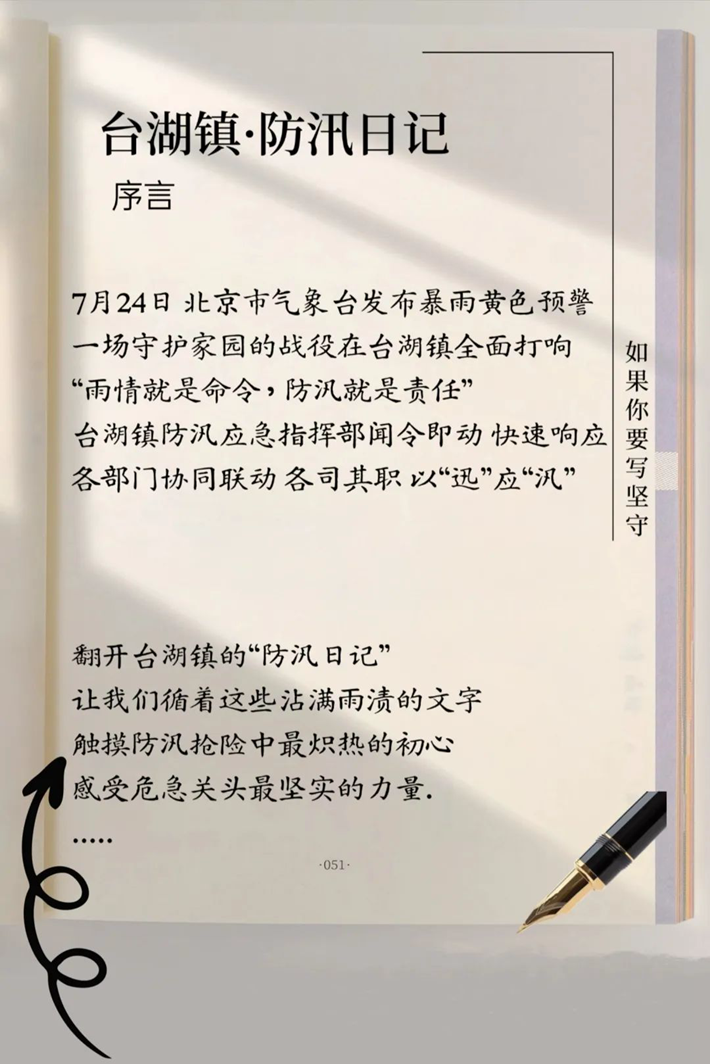 台湖镇·防汛日记
序言
7月24日 北京市气象台发布暴雨黄色预警
一场守护家园的战役在台湖镇全面打响
“雨情就是命令，防汛就是责任”
台湖镇防汛应急指挥部闻令即动 快速响应
各部门协同联动 各司其职 以“迅”应“汛”
如果你要写坚守
翻开台湖镇的“防汛日记”
让我们循着这些沾满雨渍的文字
触摸防汛抢险中最炽热的初心
感受危急关头最坚实的力量.
.....
·051·